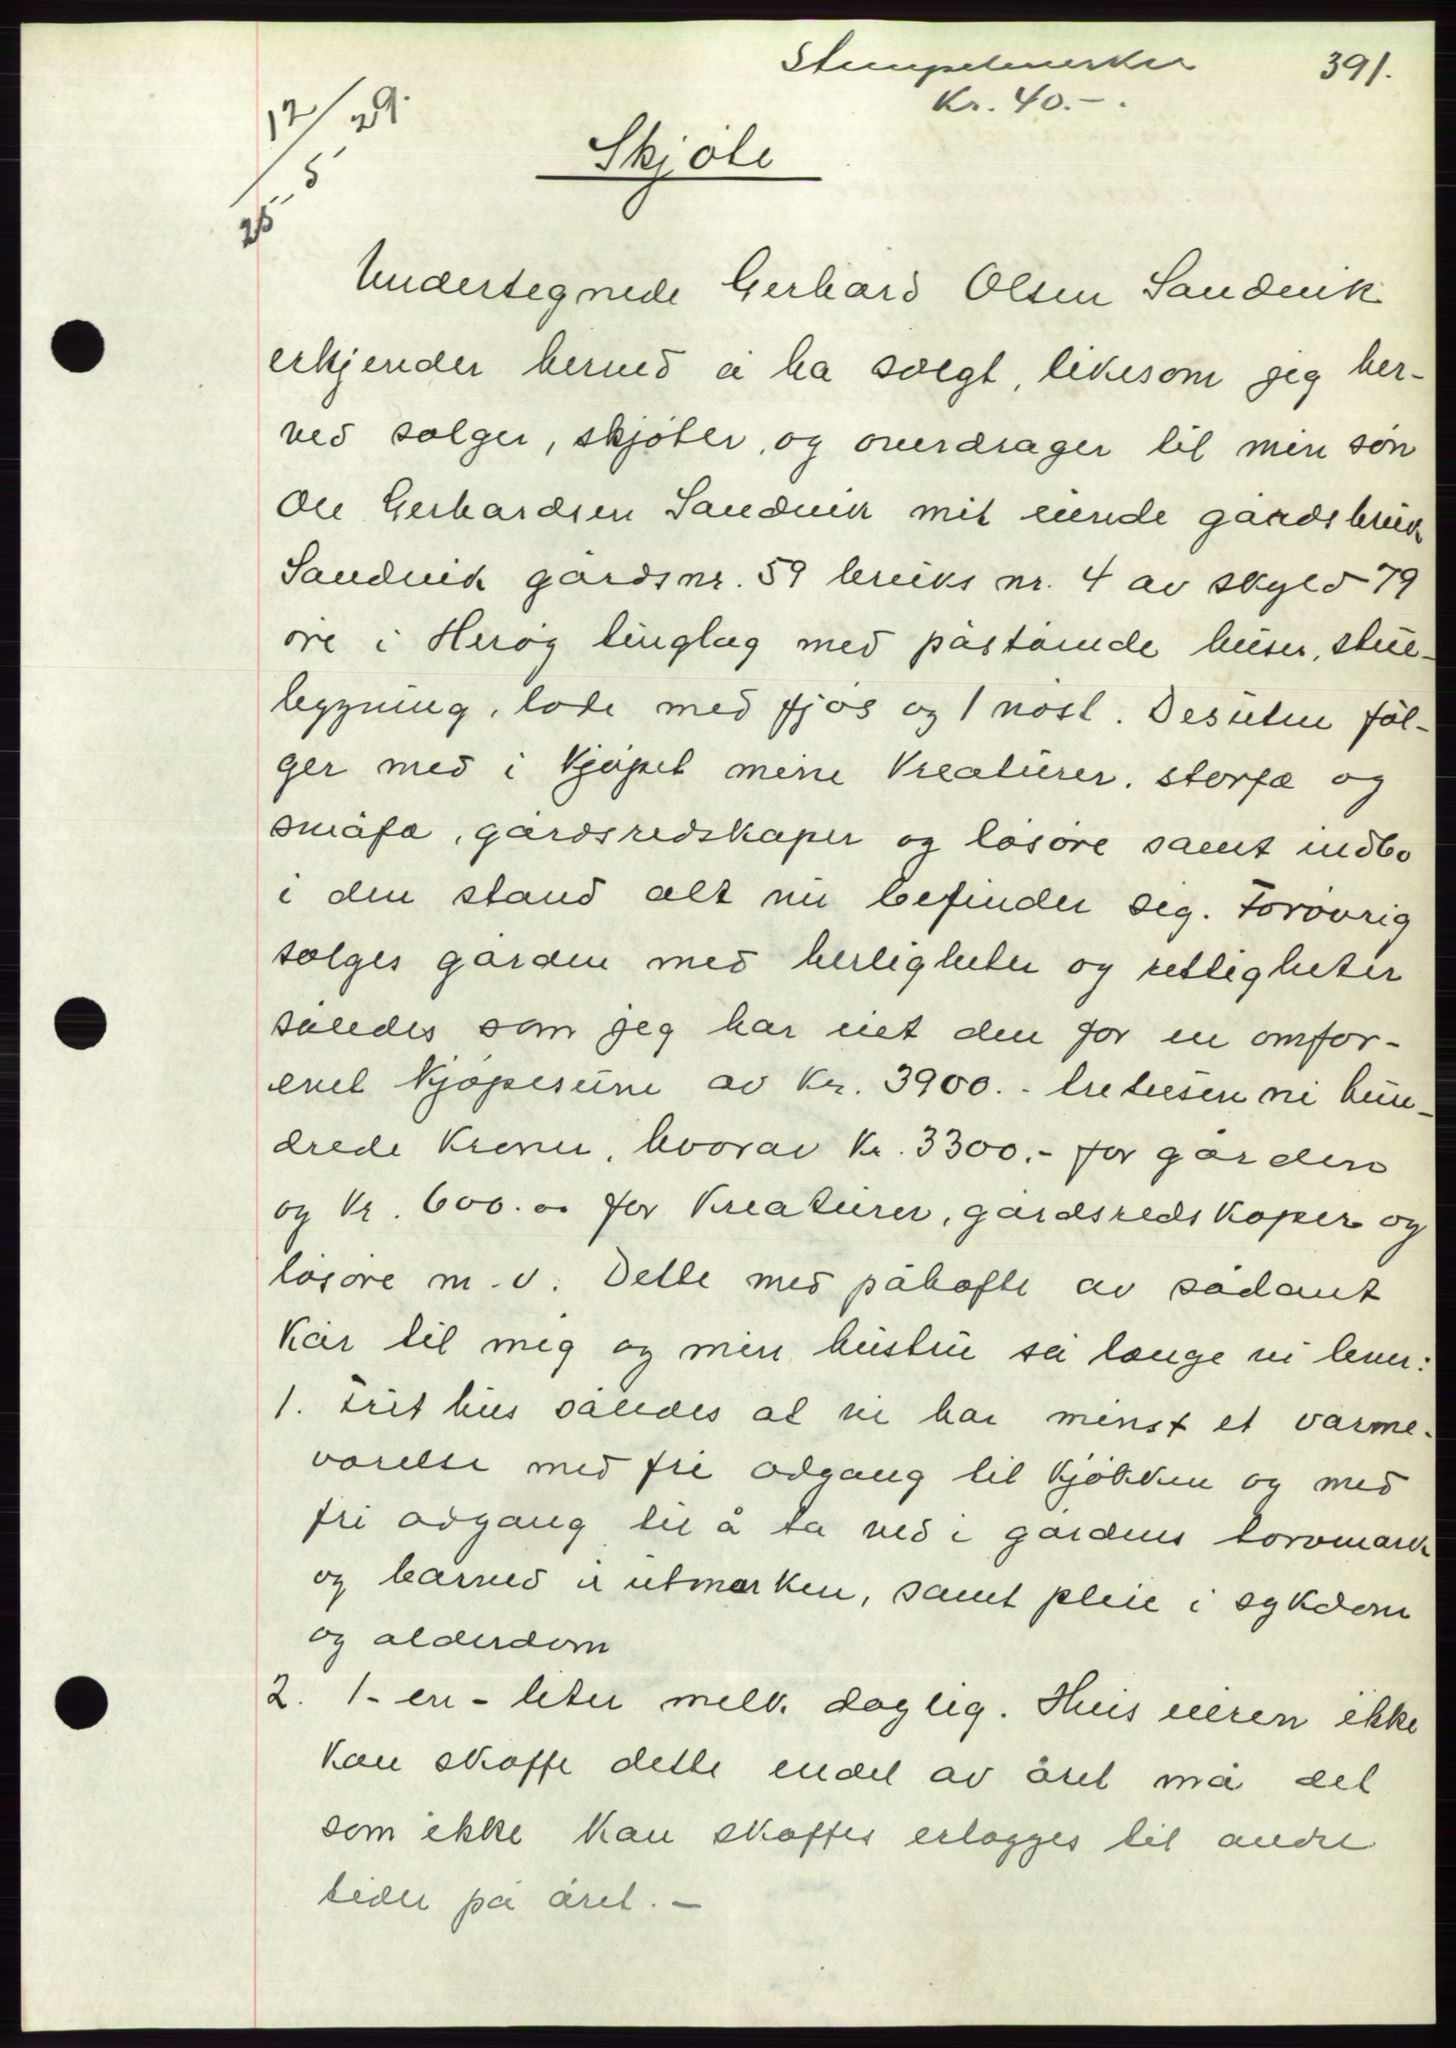 Stempelmerker
391.
Kr. 40.-.
12/5-29.
25
Skjöte
Undertegnede Gerhard Olsen Sandvik
erkjender herved å ha solgt, likesom jeg her-
ved sælger, skjöter, og overdrager til min sön
Ole Gerhardsen Sandvik mit eiende gårdsbruk
Sandvik gårdsnr. 59 bruks nr. 4 av skyld 79
öre i Heröy tinglag med påstående huser, stue-
bygning, löde med fjös og 1 nöst. Desuten föl-
ger med i kjöpet mine kreaturer, storfæ og
småfæ, gårdsredskaper og lösöre samt indbo
i den stand alt nu befinder sig. Forövrig
sælges gården med herligheter og rettigheter
således som jeg har eiet den for en omfor-
enet kjöpesum av Kr. 3900.- tretusen ni hun-
drede kroner, hvorav Kr. 3300.- for gården
og Kr. 600.00 for kreaturer, gårdsredskaper og
lösöre m.v. Dette med påhefte av sådant
kår til mig og min hustru så længe vi lever:
1. Frit hus således at vi har minst et varme-
værelse med fri adgang til kjökken og med
fri adgang til å ta ved i gårdens torvmark
og barved i utmarken, samt pleie i sykdom
og alderdom
2. 1- en - liter melk daglig. Hvis eieren ikke
kan skaffe dette endel av året må det
som ikke kan skaffes erlægges til andre
tider på året. -